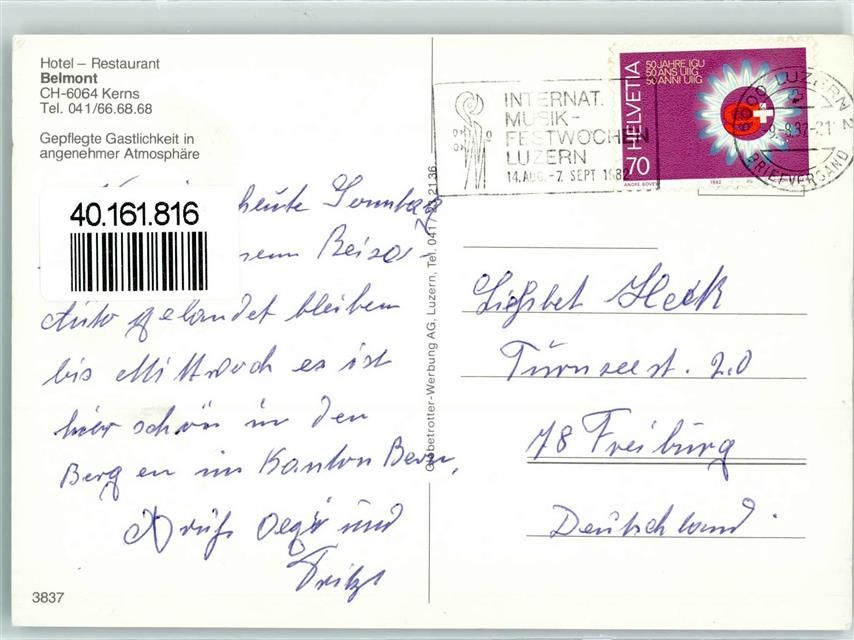 Hotel – Restaurant
Belmont
CH-6064 Kerns
Tel. 041/66.68.68
Gepflegte Gastlichkeit in
angenehmer Atmosphäre
40.161.816
heute Sonntag
Reise-
Auto gelandet bleiben
bis Mittwoch es ist
hier schön in den
Bergen im Kanton Bern,
Gruß Olga und
Fritz
3837
Globetrotter-Werbung AG, Luzern, Tel. 041
INTERNAT.
MUSIK-
FESTWOCHEN
LUZERN
14. AUG.-7. SEPT 1982
HELVETIA
50 JAHRE IGU
50 ANS UIIG
50 ANNI UIIG
70
1982
LUZERN 2
-9-8.82-21
BRIEFVERSAND
Heck
Turnseest. 20
78 Freiburg
Deutschland.